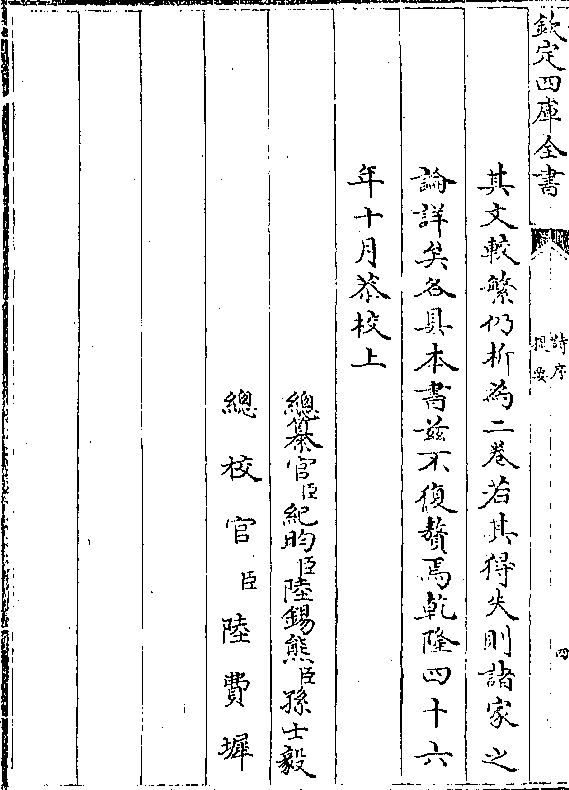 欽定四庫全書
詩序
提要
四
其文較繁仍析為二卷若其得失則諸家之
論詳矣各具本書茲不復贅焉乾隆四十六
年十月恭校上
總纂官臣紀昀臣陸錫熊臣孫士毅
總校官臣陸費墀